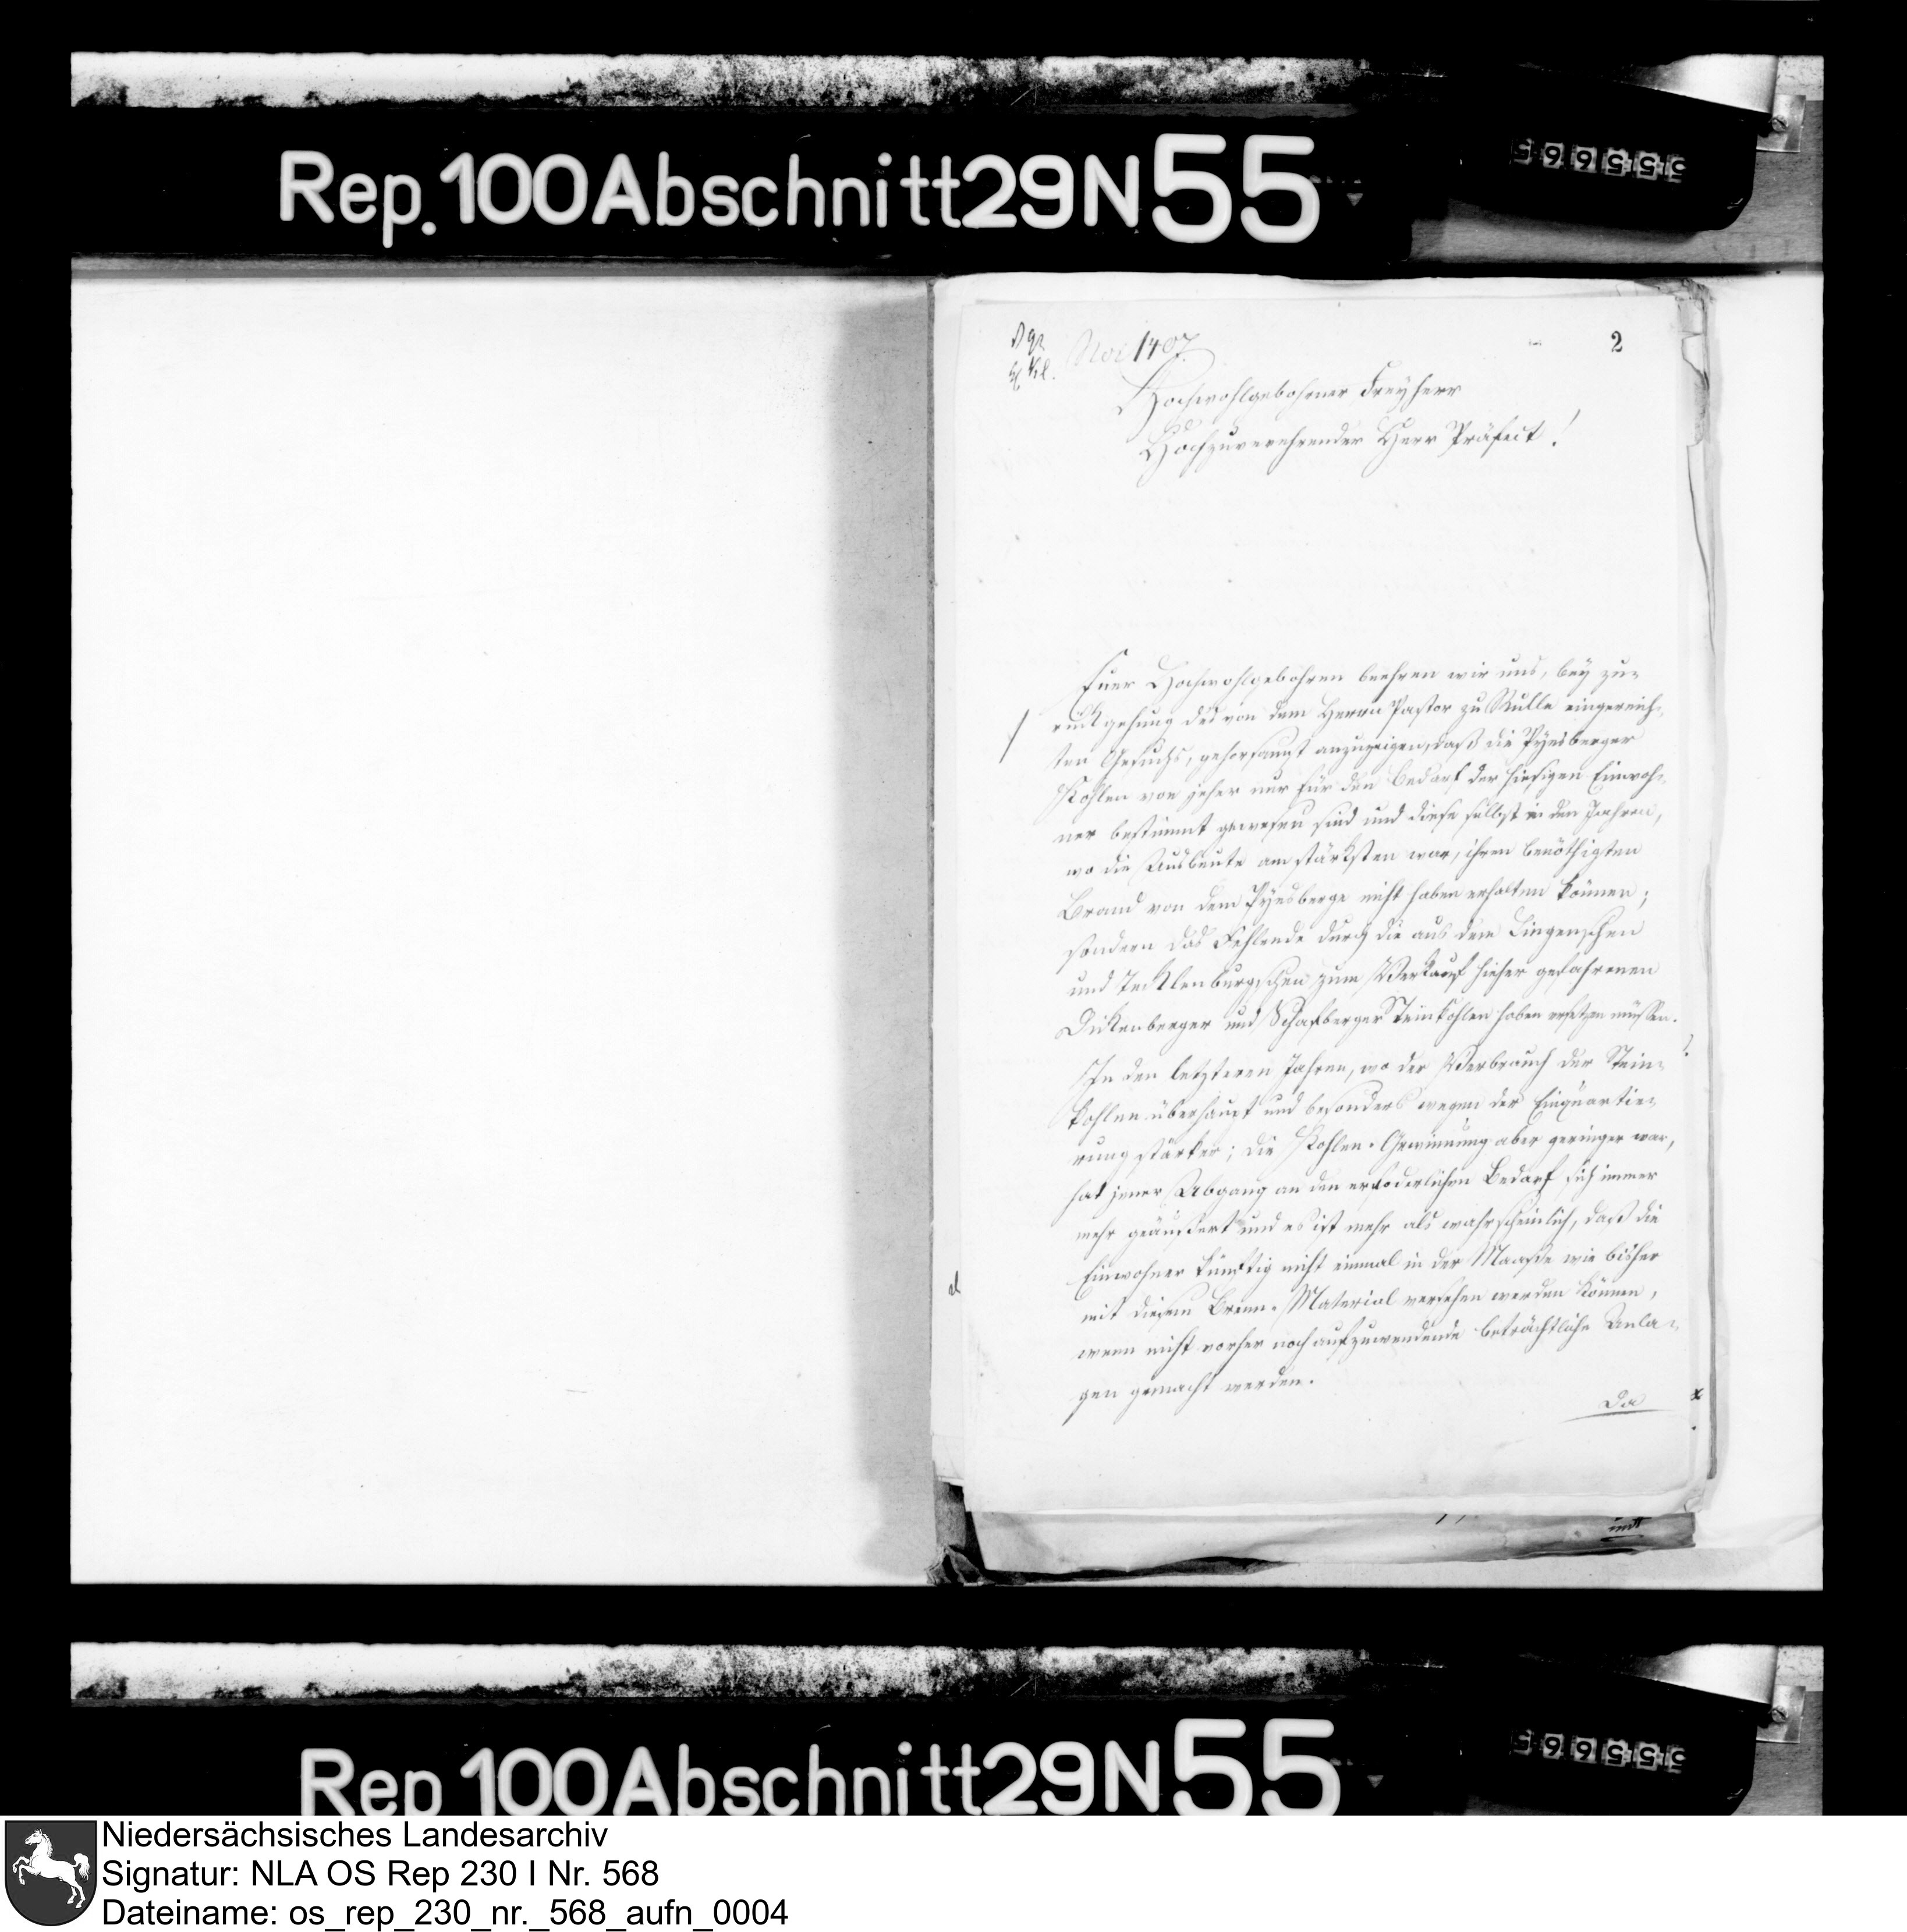 Rep. 100 Abschnitt 29 N 55
555665
2
No 1407.
Hochwohlgebohrner Freyherr
Hochzuverehrender Herr Präfect!
Euer Hochwohlgebohren beehren wir uns, bey zu-
rückgehung des von dem Herrn Pastor zu Rulle eingereich-
ten Gesuchs, gehorsamst anzuzeigen, daß die Pyesberger
Kohlen von jeher nur für den Bedarf der hiesigen Einwoh-
ner bestimmt gewesen sind und diese selbst in den Jahren,
wo die Ausbeute am stärksten war, ihren benöthigten
Brand von dem Pyesberge nicht haben erhalten können;
sondern das Fehlende durch die aus dem Lingenschen
und Tecklenburgschen zum Verkauf hieher gefahrenen
Dickenberger und Schafberger Steinkohlen haben ersetzen müssen.
In den letzteren Jahren, wo der Verbrauch der Stein-
kohlen überhaupt und besonders wegen der Einquartie-
rung stärker; die Kohlen-Gewinnung aber geringer war,
hat jener Abgang an den erfoderlichen Bedarf sich immer
mehr geäußert und es ist mehr als wahrscheinlich, daß die
Einwohner künftig nicht einmal in der Maaße wie bisher
mit diesem Brenn-Material versehen werden können,
wenn nicht vorher noch aufzuwendende beträchtliche Anla-
gen gemacht werden.
Da
Rep 100 Abschnitt 29 N 55
555665
Niedersächsisches Landesarchiv
Signatur: NLA OS Rep 230 I Nr. 568
Dateiname: os_rep_230_nr._568_aufn_0004